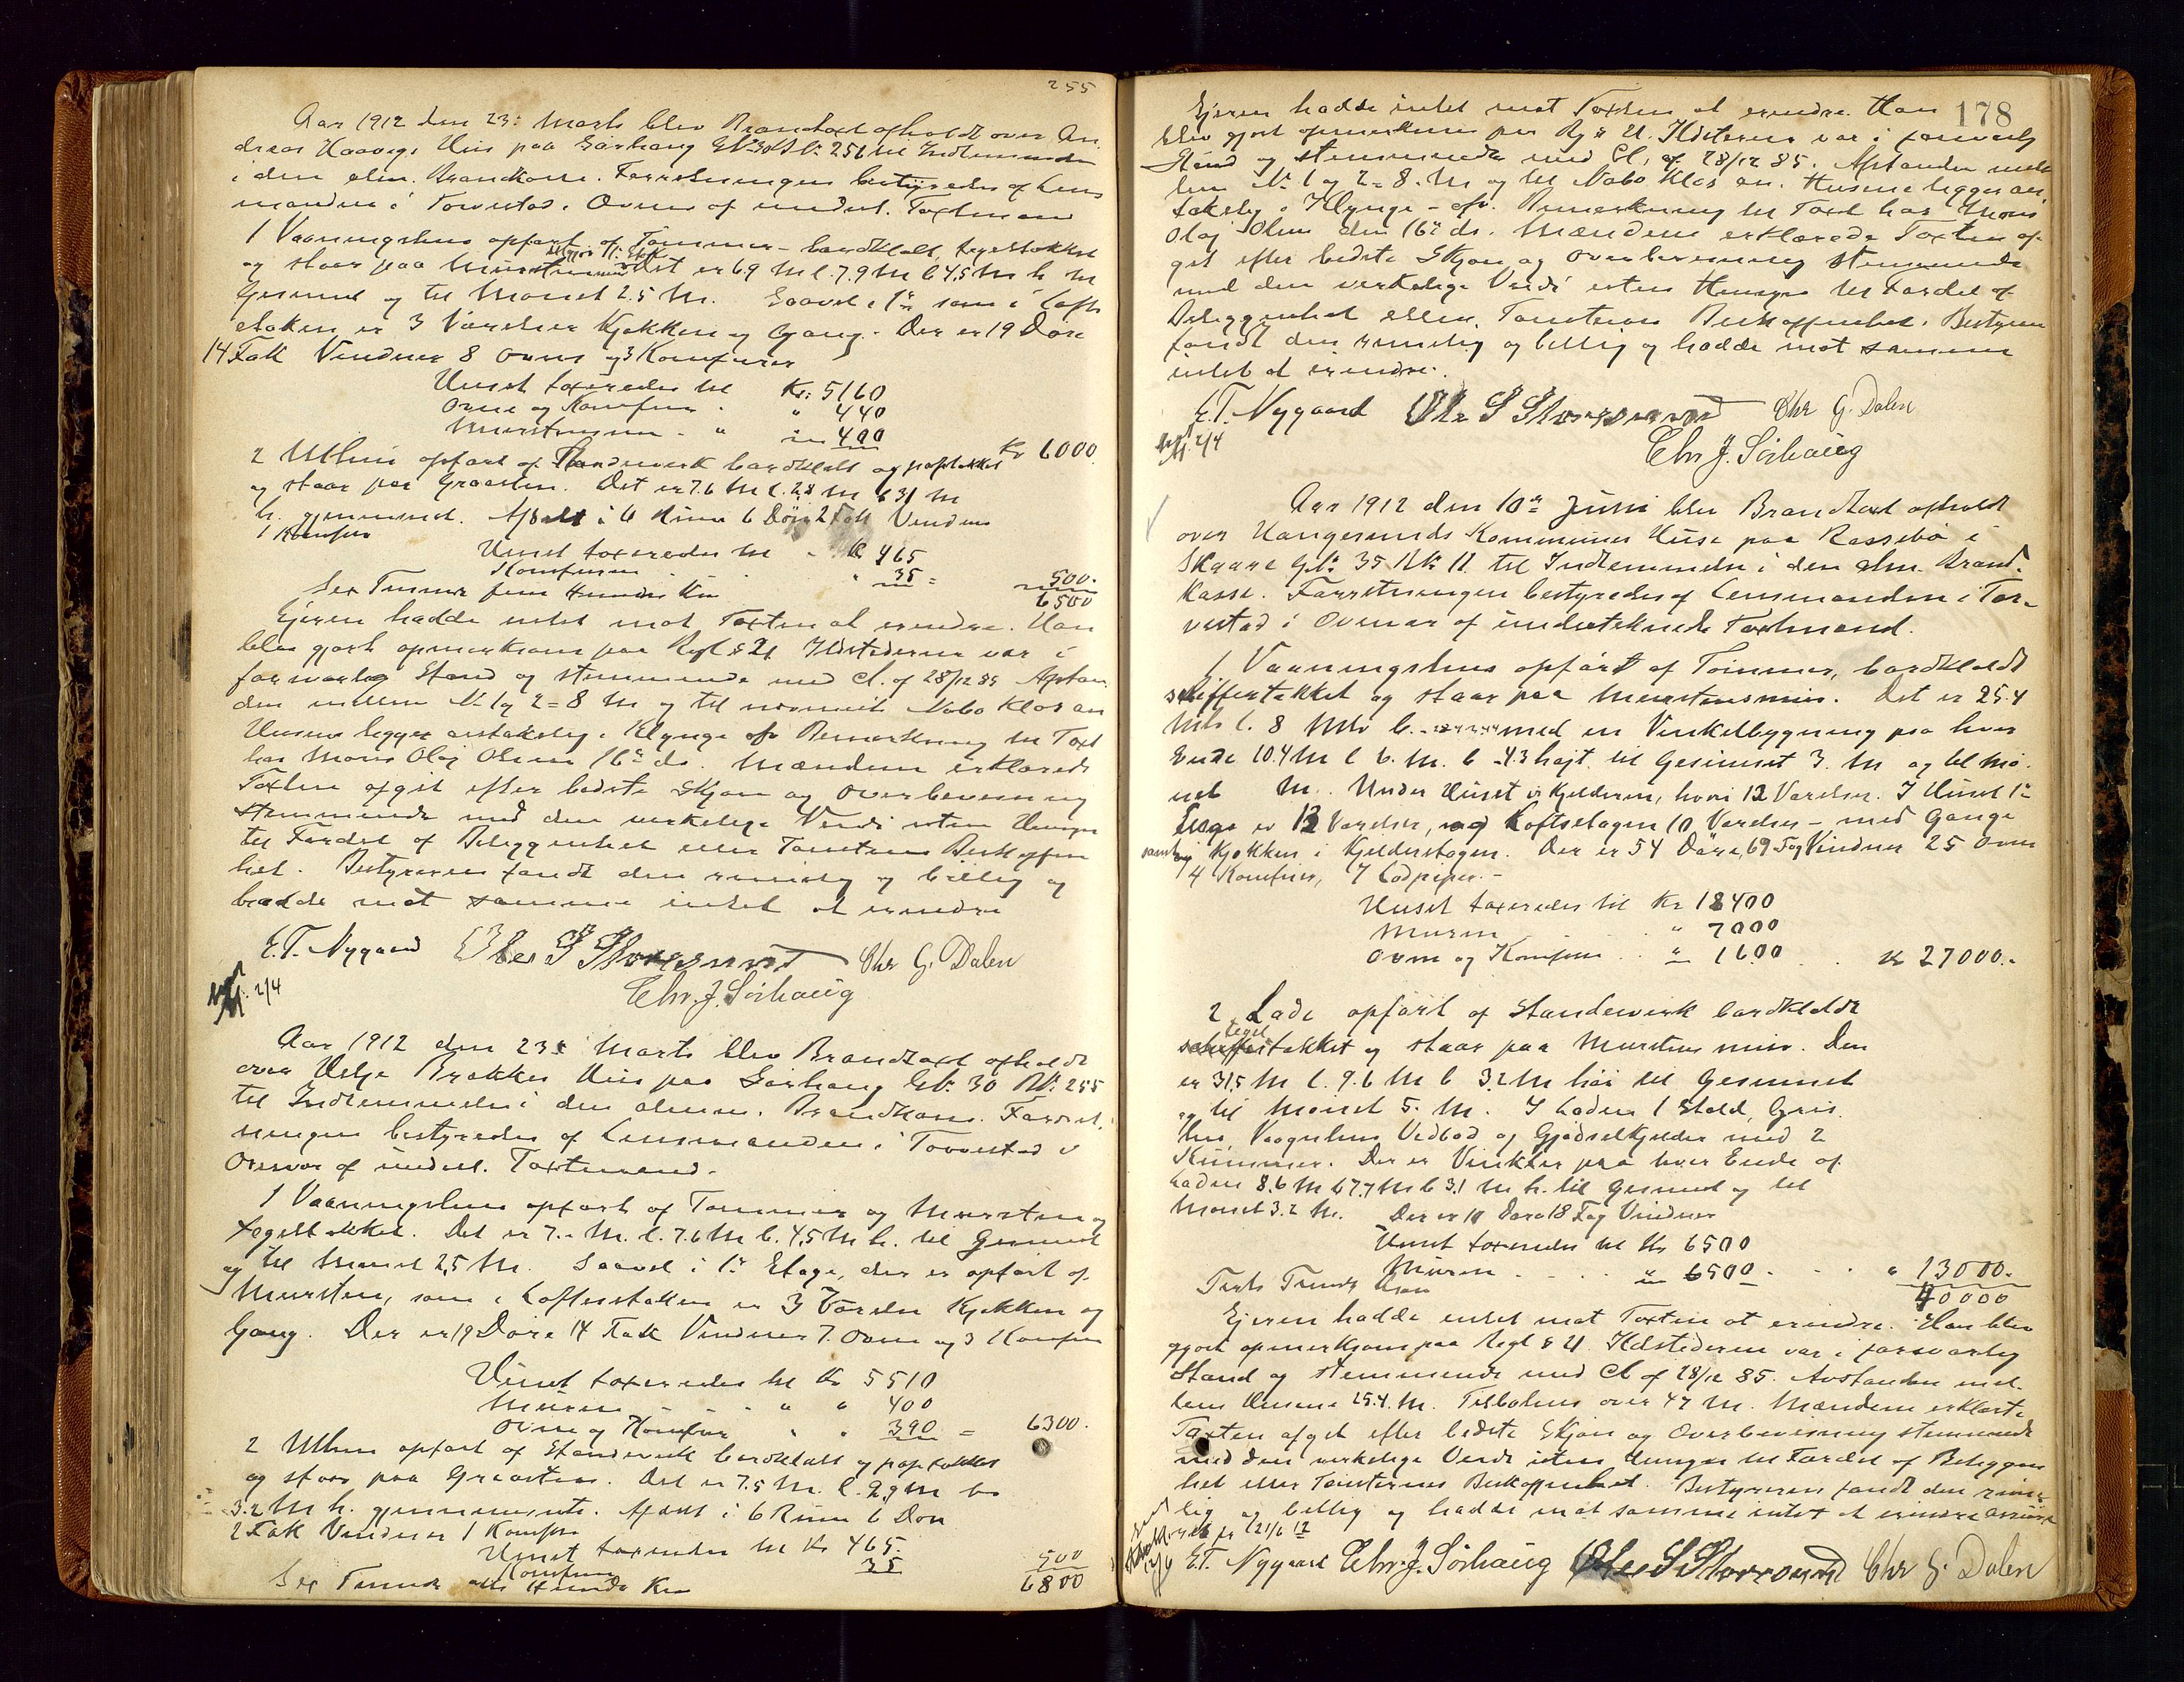 255
Aar 1912 den 23: Marts blev Brandtaxt afholdt over An
dreas Haavigs Hus paa Sørhaug GNo 30 BNo 256 til Indlemmelse
i den alm. Brandkasse. Forretningen bestyredes af Lens
manden i Torvestad i Overvær af undert. Taxtmænd
1 Vaaningshus opført af Tømmer - bordklædt, tegltækket
og staar paa Murstensmur Det er 6.9 M l. 7.9 M b 4.5 M h til
Gesimset og til Mønet 2.5 M. Saavel i 1ste som i Lofts
etagen er 3 Værelser Kjøkken og Gang. Der er 19 Døre
14 Fak Vinduer 8 Ovne og 3 Komfurer
Huset taxeredes til Kr: 5160
Ovne og Komfur " 440
Murstensmur - " " 400
Kr 6000.
2 Uthus opført af Standerverk bordklædt og paptækket
og staar paa Graasten. Det er 7.6 M l. 2.8 M b 3.1 M
h. gjennemsnt. Afdelt i 6 Rum 6 Døre 2 Fak Vinduer
1 Komfur
Huset taxeredes til - Kr 465
Komfuren " 35 = 500.
Sex Tusinde fem Hundre Kr 6500
Ejeren hadde intet mot Taxten at erindre. Han
blev gjort opmerksom paa Regl § 21 Ildstederne var i
forsvarlig Stand og stemmende med Cl. af 28/12 85 Afstan
den mellem No 1 og 2 = 8 M og til nærmeste Nabo klos an
Husene ligger i Klynge ofr Bemerkning til Taxt
hos Mons Olaj Olsen 16de ds. Mændene erklærede
Taxten afgit efter bedste Skjøn og Overbevisning
stemmende med den virkelige Verdi uten Hensyn
til Fordel af Beliggenhet eller Tomtens Beskaffen
het. Bestyreren fandt den rimelig og billig og
hadde mot samme intet at erindre
E.T. Nygaard Ole S Storesund Chr G. Dalen
2/4 Chr. J. Sørhaug
Aar 1912 den 23: Marts blev Brandtaxt afholdt
over Helje Brekkes Hus paa Sørhaug GNo 30 BNo 255
til Indlemmelse i den almin. Brandkasse. Forret
ningen bestyredes af Lensmanden i Torvestad i
Overvær af undert. Taxtmænd.
1 Vaaningshus opført af Tømmer og Mursten og
tegltækket. Det er 7.- M. l. 7.6 M b. 4.5 M h. til Gesimset
og til Mønet 2.5 M. Saavel i 1ste Etage, der er opført af
Mursten, som i Loftsetagen er 3 Værelser Kjøkken og
Gang. Der er 19 Døre 14 Fak Vinduer 7. Ovne og 3 Komfur
Huset taxeredes til Kr 5510
Muren - - - " " 400
Ovne og Komfur " " 390 = 6300.
2 Uthus opført af Standerverk bordklædt og paptækket
og staar paa Graasten. Det er 7.5 M. l. 2.9 M b.
3.2 M h. gjennemsnt. Afdelt i 6 Rum 6 Døre
2 Fak Vinduer 1 Komfur
Huset taxeredes til Kr 465.
Komfuren 35 500
Sex Tusinde otte Hundre Kr 6800
178
Ejeren hadde intet mot Taxten at erindre. Han
blev gjort opmerksom paa Rg § 21. Ildstederne var i forsvarlig
Stand og stemmende med Cl. af 28/12 85. Afstanden mel
lem No 1 og 2 = 8. M og til Nabo klos an. Husene ligger
i Klynge - ofr. Bemerkning til Taxt hos Mons
Olaj Olsen den 16de ds. Mændene erklærede Taxten af
git efter bedste Skjøn og Overbevisning stemmende
med den virkelige Verdi uten Hensyn til Fordel af
Beliggenhet eller Tomtens Beskaffenhet. Bestyreren
fandt den rimelig og billig og hadde mot samme
intet at erindre.
E.T. Nygaard Ole S Storesund Chr G. Dalen
2/4 Chr J. Sørhaug
Aar 1912 den 10de Juni blev Brandtaxt afholdt
over Haugesunds Kommunes Huse paa Rossebø i
Skaare GNo 35 BNo 11 til Indlemmelse i den alm. Brand
kasse. Forretningen bestyredes af Lensmanden i Tor-
vestad i Overvær af undertegnede Taxtmænd.
1 Vaaningshus opført af Tømmer, bordklædt
skiffertækket og staar paa Murstensmur. Det er 25.4
Mtr l. 8 Mtr b. med en Vinkelbygning paa hver
Ende 10.4 M l 6. M. b - 4.3 højt til Gesimset 3. M og til Mø-
net M. Under Huset er Kjelderen, hvori 12 Værelser. I Huset 1ste
Etage er 12 Værelser, og Loftsetagen 10 Værelser - med Gange
samt Kjøkken i Kjelderetagen. Der er 54 Døre, 69 Fag Vinduer 25 Ovne
4 Komfurer, 7 Lodpiper. -
Huset taxeredes til Kr 18400
Muren " 7000
Ovne og Komfurer . . " 1600 . . Kr 27000.-
2 Lade opført af Standerverk bordklædt
tegl
tækket og staar paa Murstens mur. Den
er 31.5 M l. 9.6 M b 3.2 M høi til Gesimset
og til Mønet 5. M. I Laden 1 Stald, Gris
hus, Vognskur, Vedbod og Gjødselkjelder med 2
Kummer. Der er Vinkler paa hver Ende af
Laden 8.6 M l 7.7 M b 3.1 M h. til Gesimset og til
Mønet 3.2 M. Der er 10 Døre 18 Fag Vinduer
Huset taxeredes til Kr 6500
Muren . - . . " 6500 - . . " 13000.
Førti Tusinde Kroner 40000
Ejeren hadde intet mot Taxten at erindre. Han blev
gjort opmerksom paa Regl § 21 Ildstederne var i forsvarlig
Stand og stemmende med Cl af 28/12 85. Avstanden mel-
lem Husene 25.4. M. Til over 47 M. Mændene erklærte
Taxten afgit efter bedste Skjøn og Overbevisning stemmende
med den virkelige Verdi uten Hensyn til Fordel af Beliggen
het eller Tomternes Beskaffenhet. Bestyreren fandt den rime-
lig og billig og hadde mot samme intet at erindre
21/6 12
E.T. Nygaard Chr. J. Sørhaug Ole S Storesund Chr G. Dalen